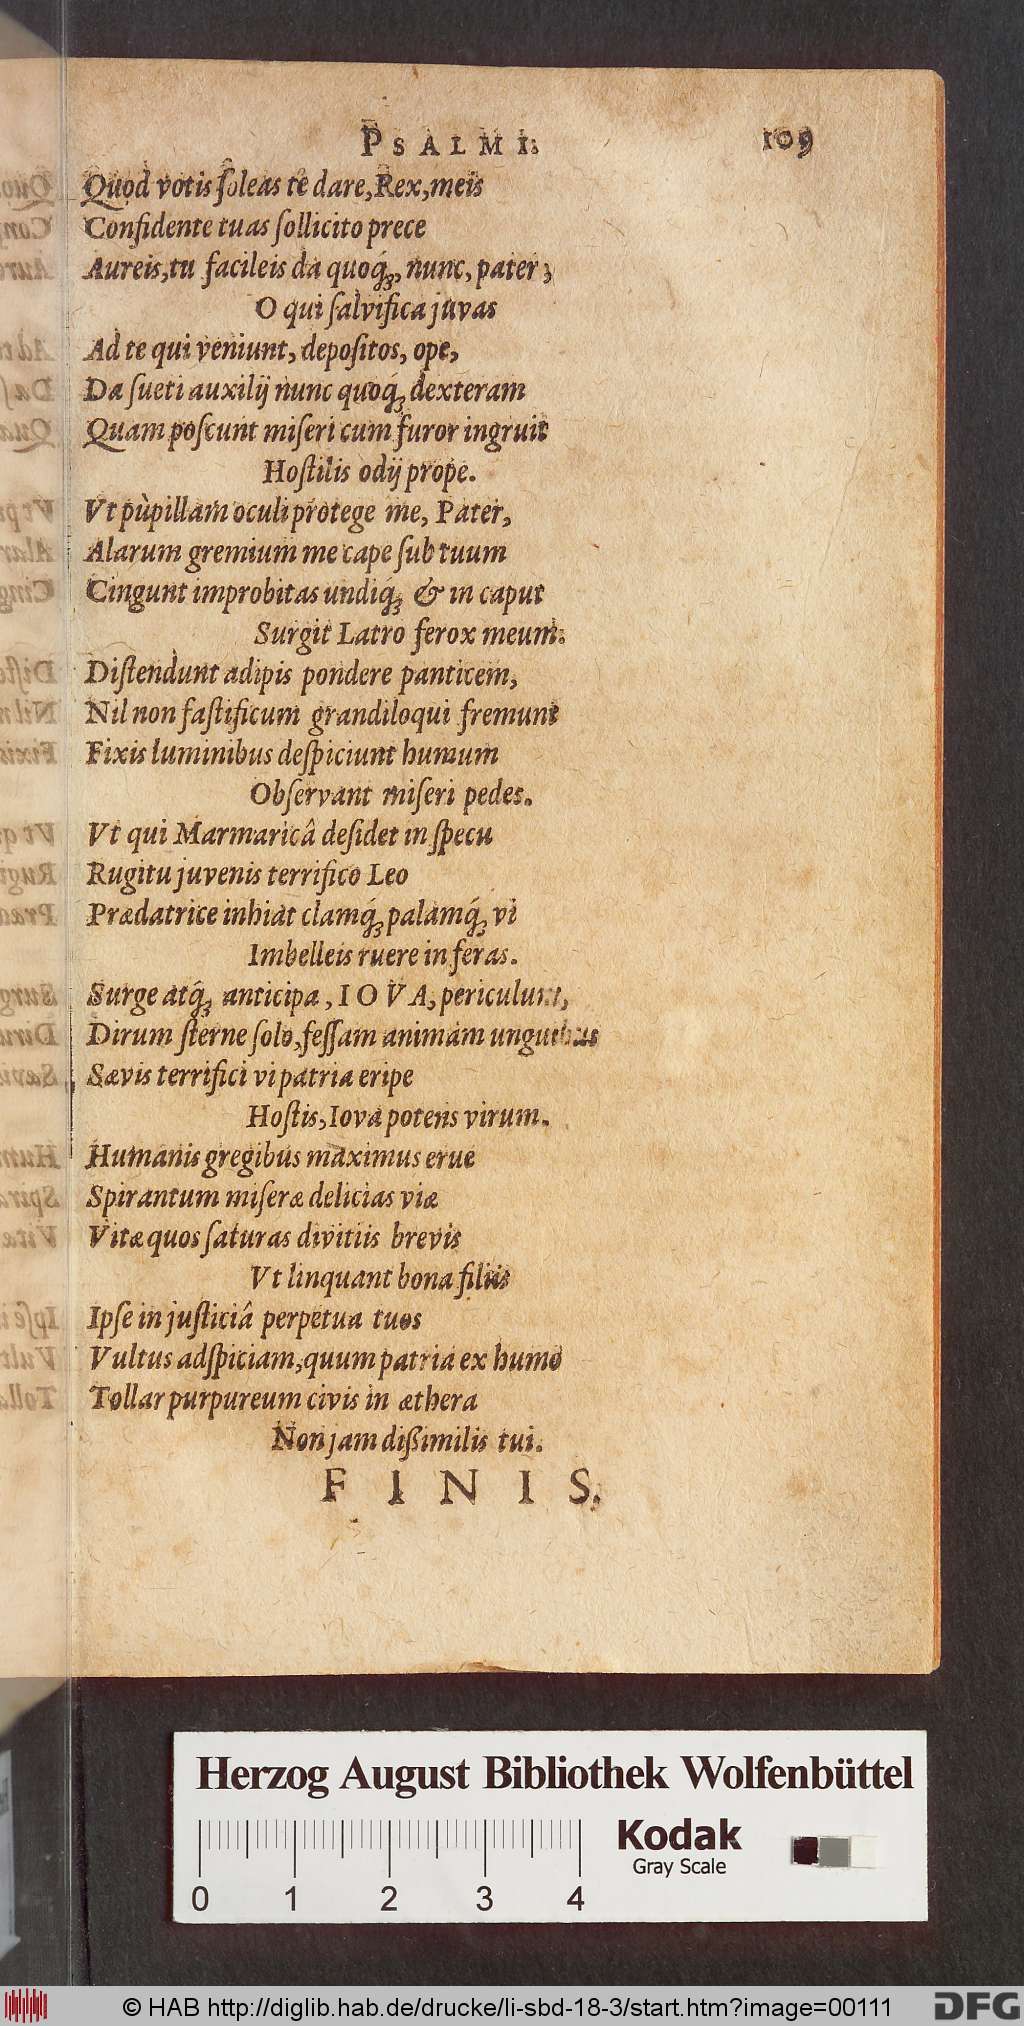 PSALMI. 109
Quod votis ſoleas te dare, Rex, meis
Confidente tuas ſollicito prece
Aureis, tu facileis da quoq́;, nunc, pater;
O qui ſalvifica juvas
Ad te qui veniunt, depoſitos, ope,
Da ſueti auxilij nunc quoq́; dexteram
Quam poſcunt miſeri cum furor ingruit
Hoſtilis odij prope.
Vt pùpillam oculi protege me, Pater,
Alarum gremium me cape ſub tuum
Cingunt improbitas undiq́; & in caput
Surgit Latro ferox meum.
Diſtendunt adipis pondere panticem,
Nil non faſtificum grandiloqui fremunt
Fixis luminibus deſpiciunt humum
Obſervant miſeri pedes.
Vt qui Marmaricâ deſidet in ſpecu
Rugitu juvenis terrifico Leo
Prædatrice inhiat clamq́; palamq́; vi
Imbelleis ruere in feras.
Surge atq́; anticipa, IOVA, periculum,
Dirum ſterne ſolo, feſſam animam unguibus
Sævis terrifici vi patria eripe
Hoſtis, Iova potens virum.
Humanis gregibus maximus erue
Spirantum miſeræ delicias viæ
Vitæ quos ſaturas divitiis brevis
Vt linquant bona filiis
Ipſe in juſticiâ perpetua tuos
Vultus adſpiciam, quum patria ex humo
Tollar purpureum civis in æthera
Non jam dißimilis tui.
FINIS.
Herzog August Bibliothek Wolfenbüttel
Kodak
Gray Scale
0 1 2 3 4
© HAB http://diglib.hab.de/drucke/li-sbd-18-3/start.htm?image=00111
DFG